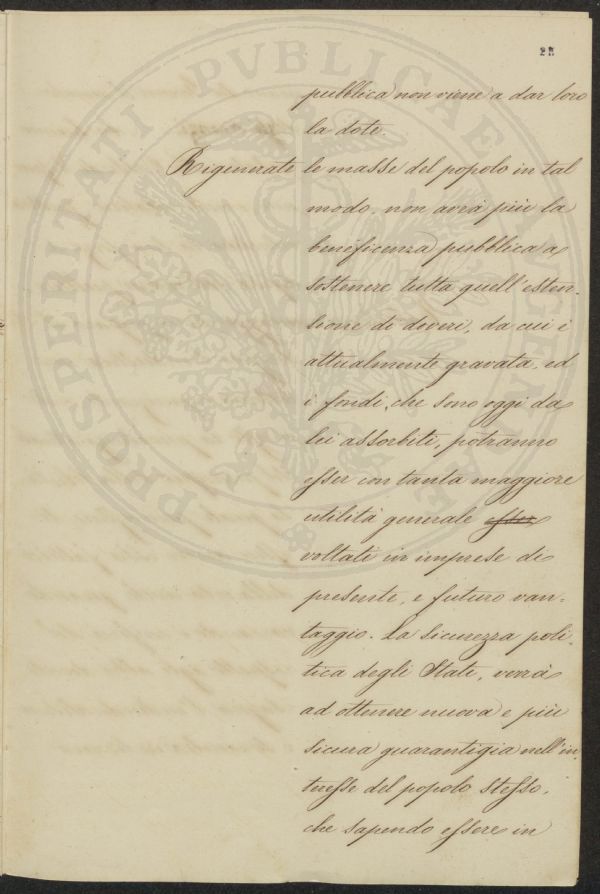 25
pubblica non viene a dar loro
la dote.
Rigenerate le masse del popolo in tal
modo, non avrà più la
beneficenza pubblica a
sostenere tutta quell'esten-
sione di doveri, da cui è
attualmente gravata, ed
i fondi, che sono oggi da
lei assorbiti, potranno
esser con tanta maggiore
utilità generale esser
voltati in imprese di
presente, e futuro van-
taggio. La sicurezza poli-
tica degli Stati, verrà
ad ottenere nuova e più
sicura guarantigia nell'in-
teresse del popolo stesso,
che sapendo essere in
PROSPERITATI PVBLICAE AVGENDAE